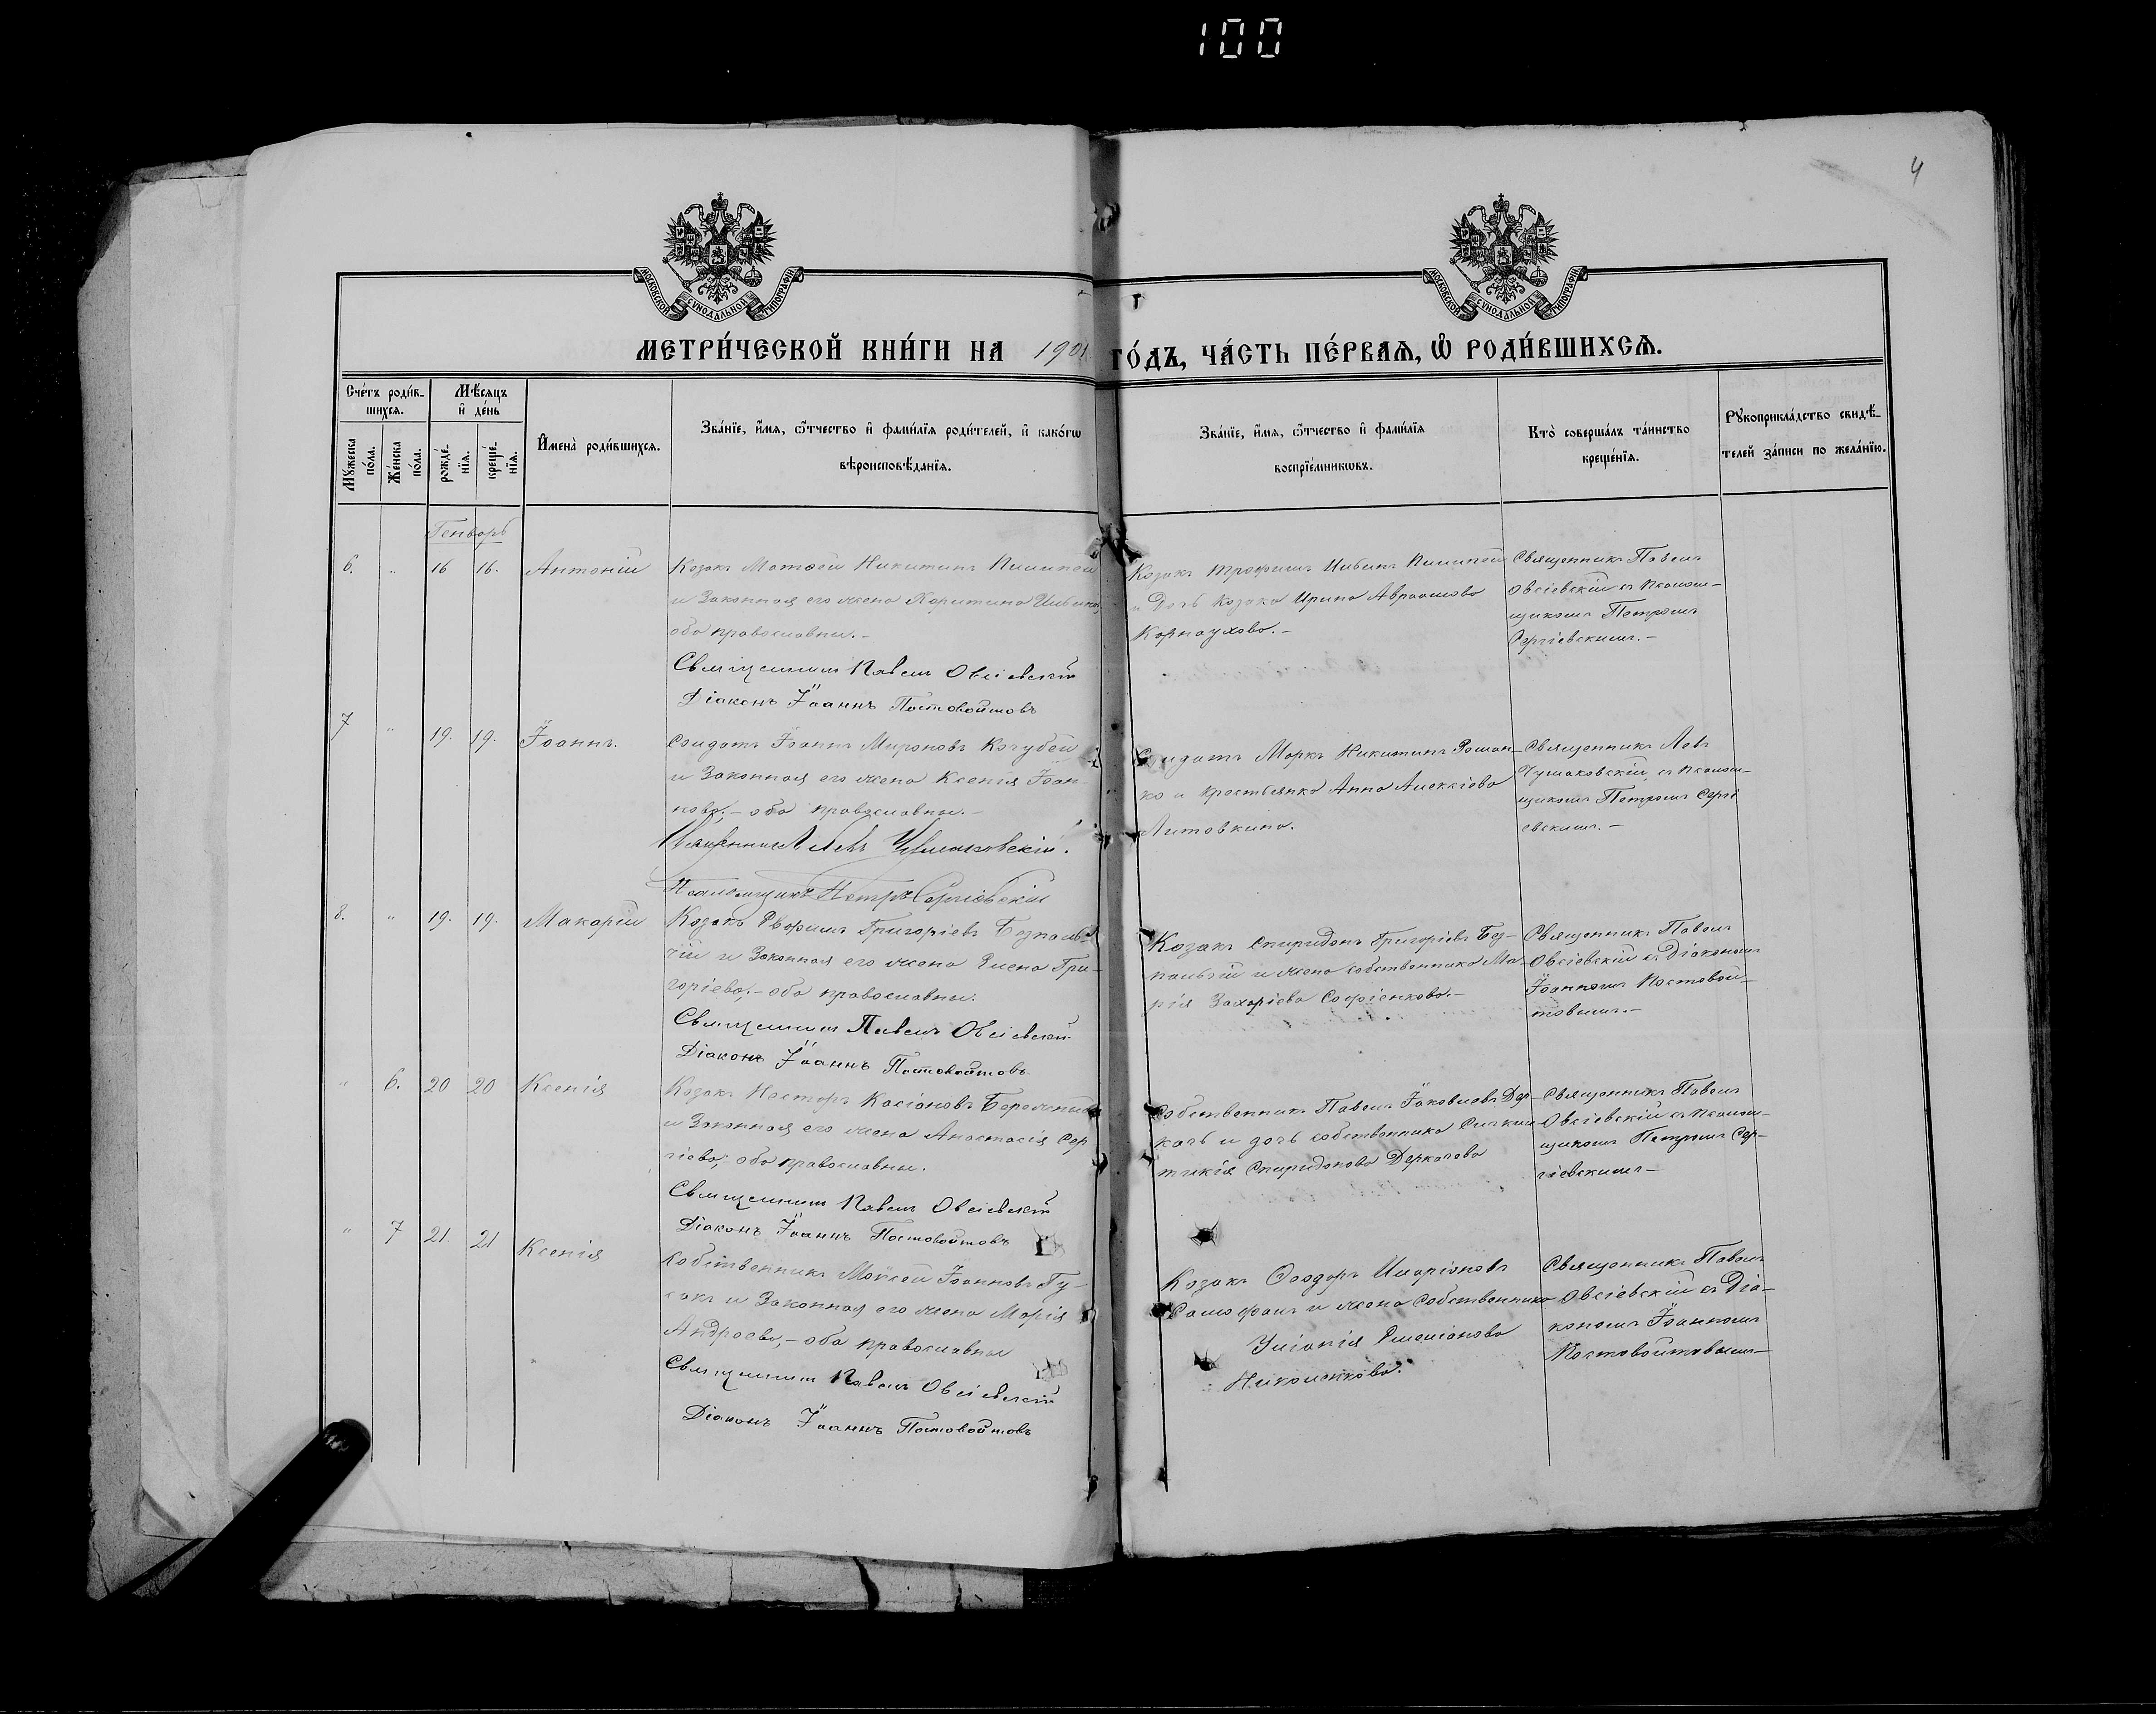 100
4
МОСКОВСКОЙ СѴНОДАЛЬНОЙ ТИПОГРАФІИ
МОСКОВСКОЙ СѴНОДАЛЬНОЙ ТИПОГРАФІИ
МЕТРИ́ЧЕСКОЙ КНИ́ГИ НА 1901 ГО́ДЪ, ЧА́СТЬ ПЕ́РВАѦ, Ѽ РОДИ́ВШИХСѦ.
Сче́тъ роди́в-
шихсѧ.
Мꙋжеска по́ла.
Же́нска по́ла.
Мѣ́сѧцъ и҆ де́нь
рожде́-
нїѧ.
креще́-
нїѧ.
И҆мена̀ роди́вшихсѧ.
Зва́нїе, и҆́мѧ, ѻ҆́тчество и҆ фами́лїѧ роди́телей, и҆ како́гѡ
вѣроисповѣ́данїѧ.
Зва́нїе, и҆́мѧ, ѻ҆́тчество и҆ фами́лїѧ
воспрїе́мникѡвъ.
Кто̀ соверша́лъ та́инство
креще́нїѧ.
Рꙋкоприкла́дство свидѣ́-
телей за́писи по жела́нїю.
Генварь
6. " 16 16. Антоній
Козакъ Матѳей Никитинъ Пилипей
и Законная его жена Харитина
оба православны.-
Священникъ Павелъ Овсіевскій
Діаконъ Іоаннъ Постовойтовъ
Козакъ Трофимъ Пилипей
и Дочь Козака Ирина Авраамова
Карнаухова.-
Священникъ Павелъ
Овсіевскій съ Псалом-
щикомъ Петромъ
Сергіевскимъ.-
7 " 19. 19. Іоаннъ.
Солдатъ Іоаннъ Мироновъ Кочубей
и Законная его жена Ксенія Іоан-
нова,- оба православны.-
Священникъ Левъ Чумаковскій.
Псаломщикъ Петръ Сергіевскій
Солдатъ Маркъ Никитинъ Роман-
ко и крестьянка Анна Алексіева
Литовкина.
Священникъ Левъ
Чумаковскій, съ Псалом-
щикомъ Петромъ Сергі
евскимъ.-
8. " 19. 19. Макарій
Козакъ Евфимъ Григоріевъ Безпаль-
чій и Законная его жена Елена Гри-
горіева,- оба православны.
Священникъ Павелъ Овсіевскій
Діаконъ Іоаннъ Постовойтовъ
Козакъ Спиридонъ Григоріевъ Без-
пальчій и жена собственника Ма-
рія Захаріева Софіенкова.-
Священникъ Павелъ
Овсіевскій съ Діакономъ
Іоанномъ Постовой-
товымъ.-
" 6. 20 20 Ксенія
Козакъ Несторъ Касіановъ
и Законная его жена Анастасія Сер-
гіева,- оба православны.
Священникъ Павелъ Овсіевскій
Діаконъ Іоаннъ Постовойтовъ
Собственникъ Павелъ Іаковлевъ Дер-
качъ и дочь собственника
тикія Спиридонова Деркачева
Священникъ Павелъ
Овсіевскій съ Псалом-
щикомъ Петромъ Сер-
гіевскимъ-
" 7 21. 21 Ксенія
Собственникъ Моѵсей Іоанновъ Гу-
сакъ и Законная его жена Марія
Андреева,- оба православны
Священникъ Павелъ Овсіевскій
Діаконъ Іоаннъ Постовойтовъ
Козакъ Ѳеодоръ Иларіоновъ
и жена Собственника
Уліанія
Николенкова.
Священникъ Павелъ
Овсіевскій съ Діа-
кономъ Іоанномъ
Постовойтовымъ-